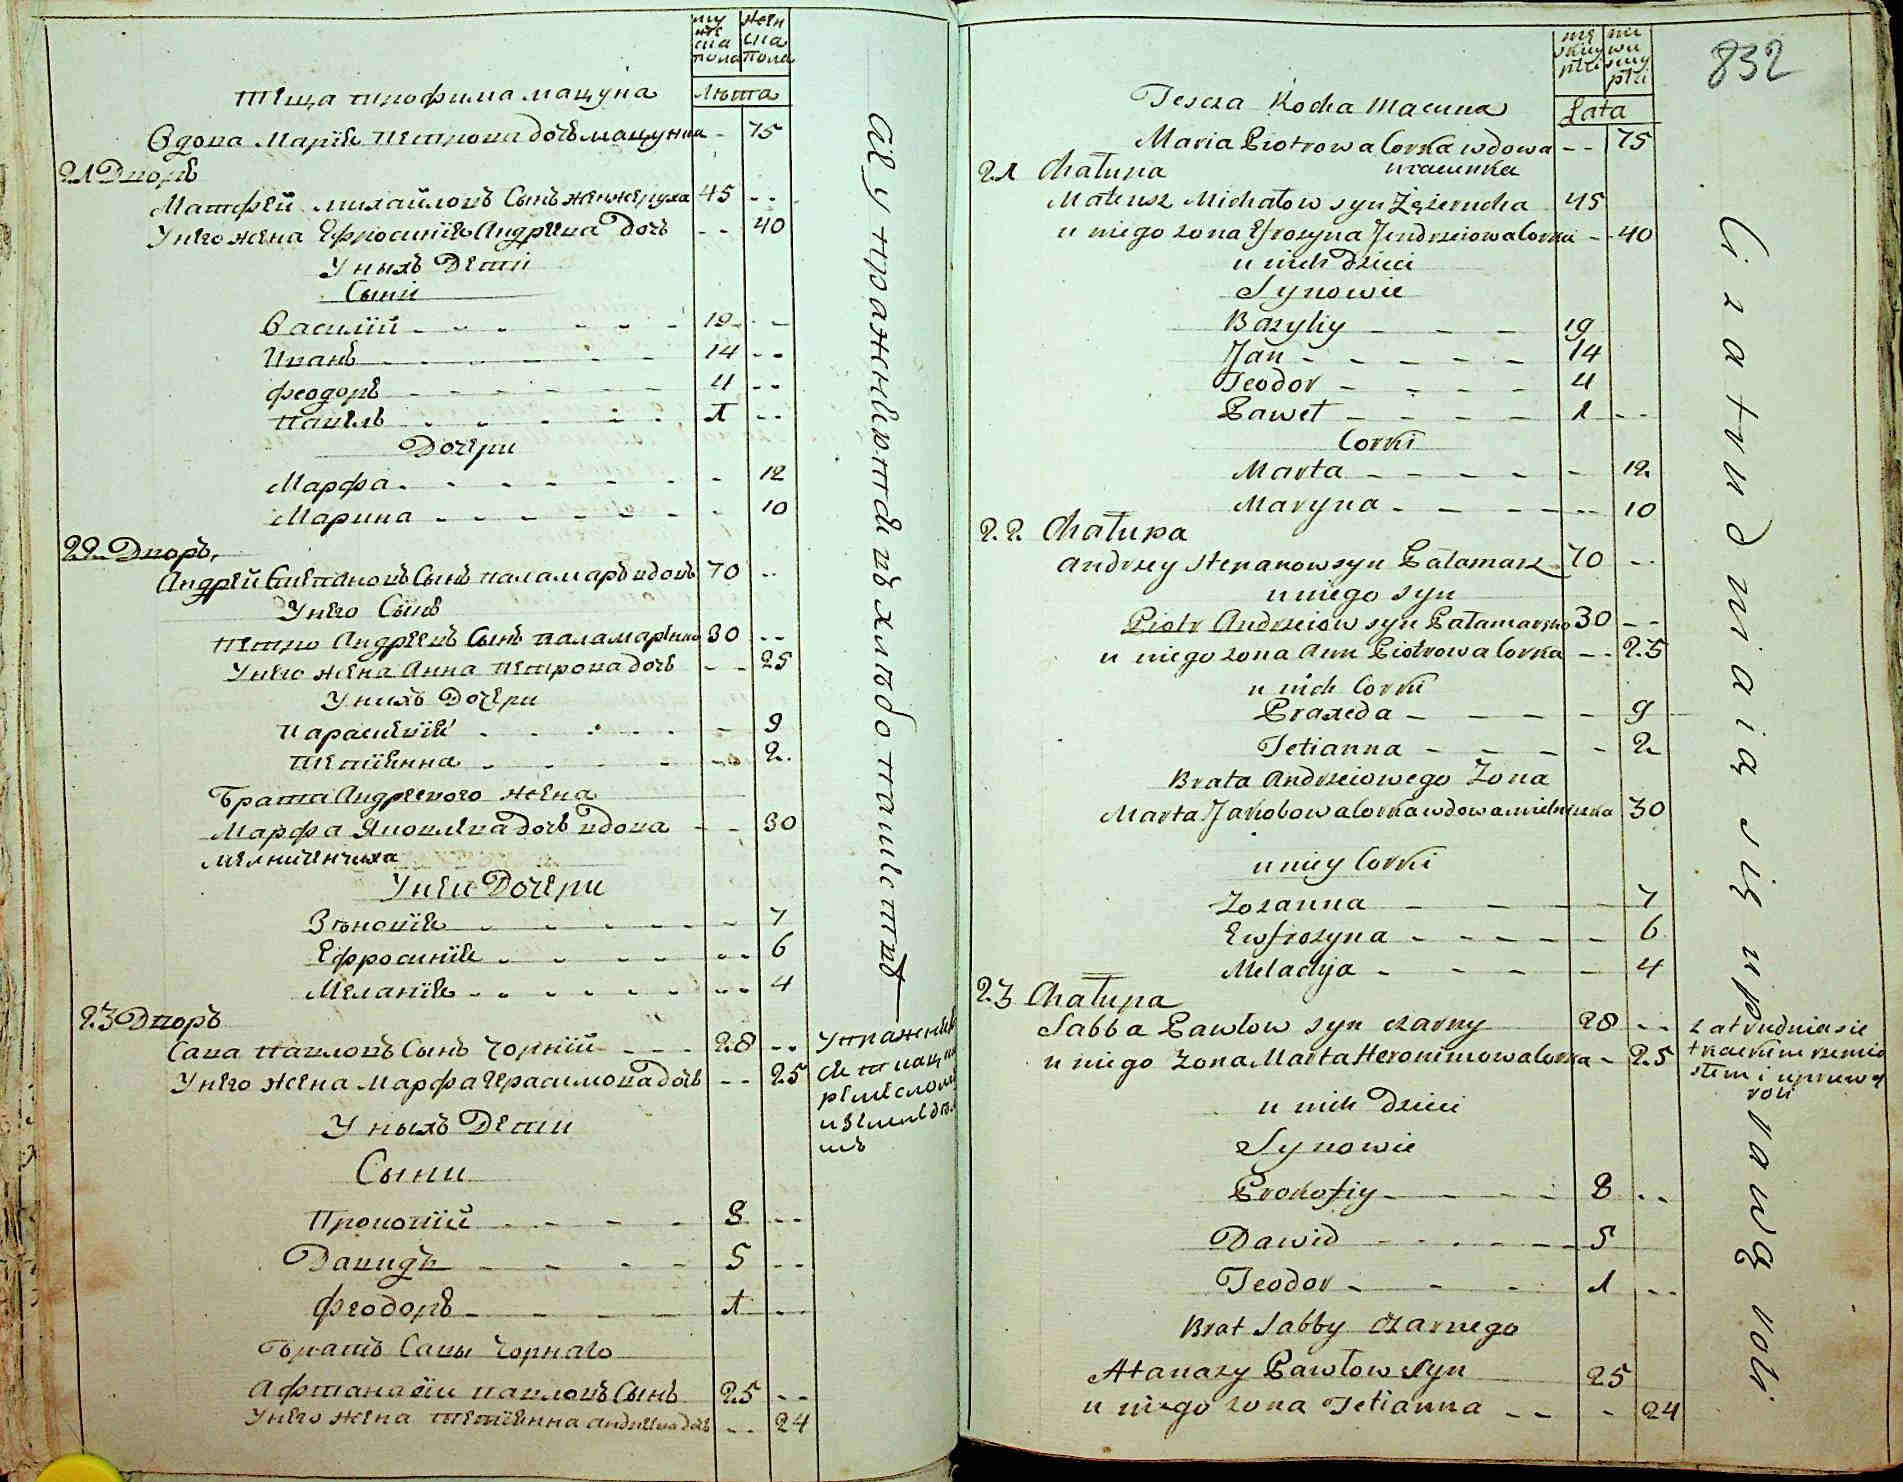 муж
ска
пола
жен
ска
пола
Лѣта
Теща трофима мацука
Вдова Марія Петрова дочь мацучка -- 75
21 Дворъ
Матфей михайловъ Сынъ женжеруха 45 --
У него жена Ефросинія Андреева дочь -- 40
У ныхъ Дети
Сыни
Василій 19 --
Иванъ 14 --
феодоръ 4 --
Павелъ 1 --
Дочери
Марфа - 12
Марина - 10
22 Дворъ
Андрей Степановъ Сынъ паламаръ вдовъ 70 --
У него Сынъ
Петро Андреевъ Сынъ паламаренко 30 --
У него жена Анна петрова дочь -- 25
У нихъ Дочери
Парасковія - 9
Тетіянна -- 2
Брата Андреевого жена
Марфа Яковлева дочь вдова -- 30
мелниченчиха
У неи Дочери
Зѣновія - 7
Ефросинія -- 6
Меланія -- 4
23 Дворъ
Сава павловъ Сынъ Чорній 28 --
У него жена Марфа Герасимова дочь -- 25
У ныхъ Дети
Сыни
Прокопій 8 --
Давидъ 5 --
феодоръ 1 --
Братъ Савы Чорнаго
Афтанасій павловъ Сынъ 25 --
У него жена тетіянна андреева дочь -- 24
ся упражняются въ хлѣбопашестве
упражняе
ся ткац
ремесломъ
и земледѣл
мъ
832
mę
skiey
płci
nie
wie
skiey
płci
Lata
Tescza Kocha Macuka
Maria Piotrowa Corka wdowa -- 75
macunka
21 Chałupa
Mateusz Michałow syn Zężerucha 45
u niego zona Efrozyna Jendrzeiowa Corka -- 40
u nich dzieci
Synowie
Bazyliy 19
Jan 14
Teodor 4
Paweł 1 --
Corki
Marta - 12
Maryna -- 10
22 Chałupa
Andrzey Stepanow syn Pałamarz 70 --
u niego syn
Piotr Andrzeiow syn Pałamarzko 30 --
u niego zona Ann Piotrowa Corka -- 25
u nich Corki
Praxeda - 9
Tetianna - 2
Brata Andrzeiowego Zona
Marta Jakobowa Corka wdowa mielniczka 30
u niey Corki
Zozanna - 7
Ewfrozyna - 6
Mełachja - 4
23 Chałupa
Sabba Pawłow syn czarny 28 --
u niego Zona Marta Heronimowa Corka - 25
u nich Dzieci
Synowie
Prokofiy 8 --
Dawid 5
Teodor 1 --
Brat Sabby Czarnego
Atanazy Pawłow Syn 25
u niego zona Tetianna -- - 24
Ci zatrudniaią się uprawą roli
zatrudnia sie
tkackim rzemio
słem i uprawą
roli